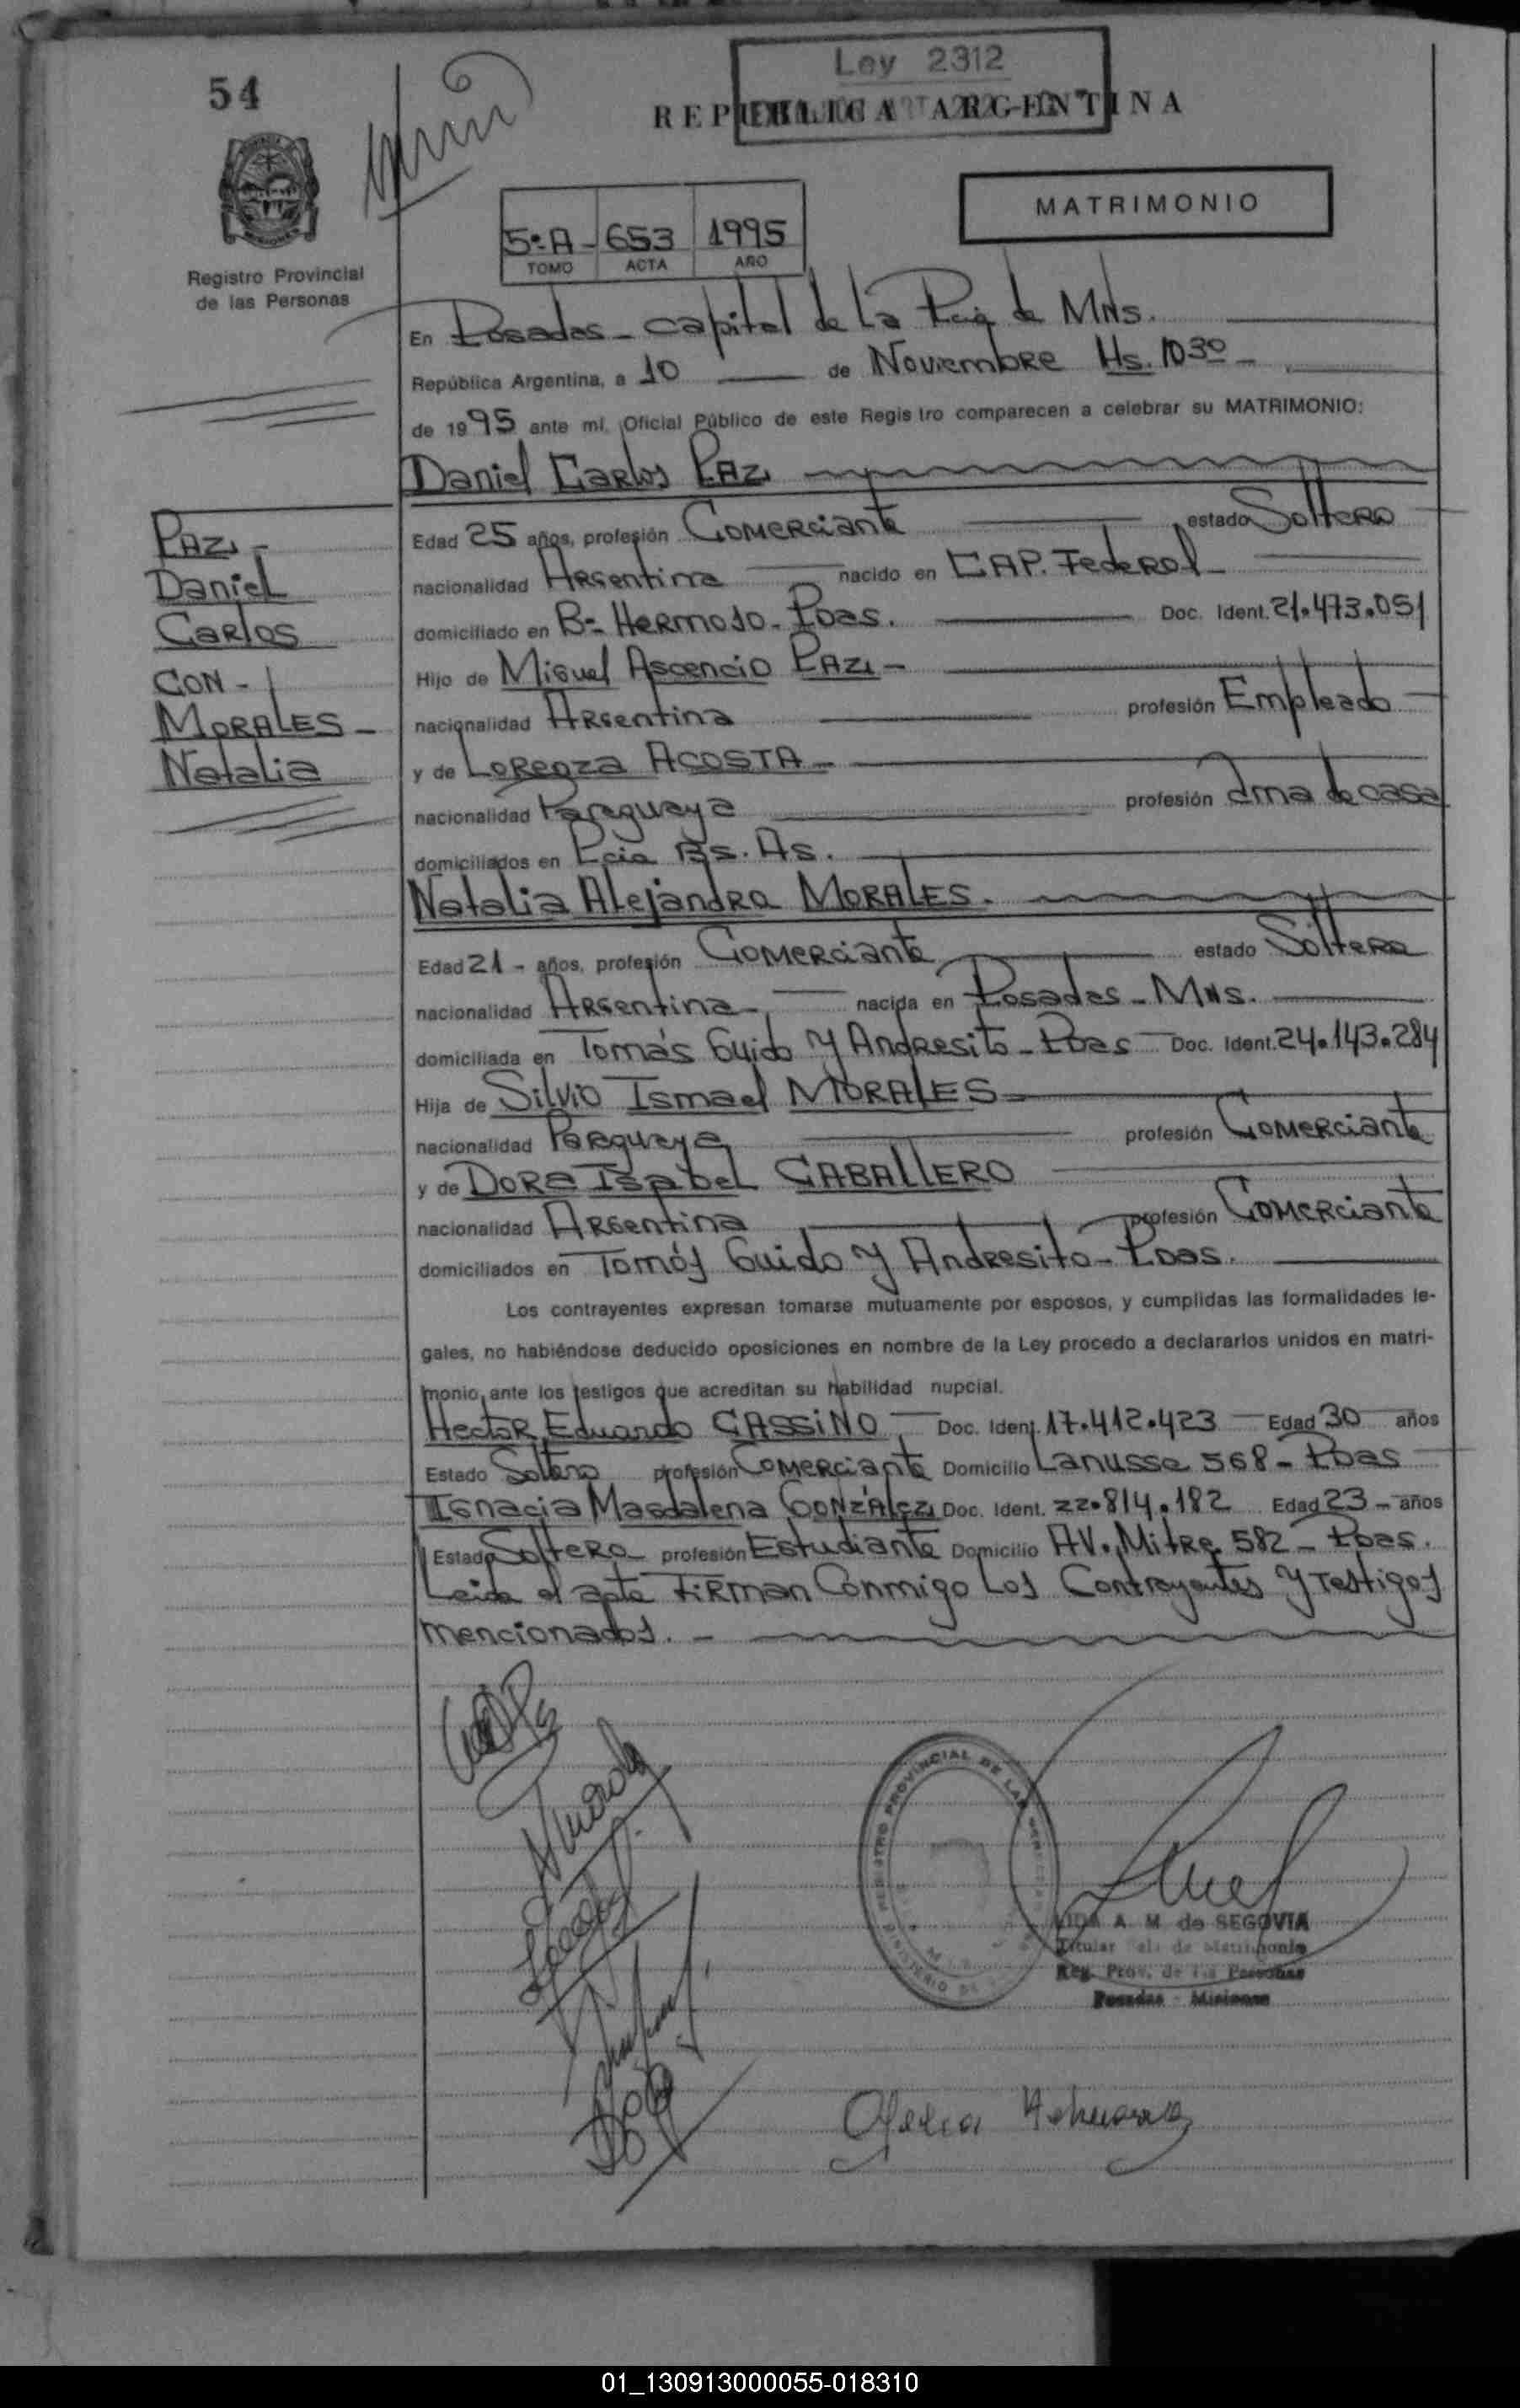 54
Ley 2312
REPUBLICA ARGENTINA
MATRIMONIO
5ºA - 653 1995
TOMO ACTA AÑO
Registro Provincial
de las Personas
En Posadas - capital de la Pcia de MNs.
República Argentina, a 10 de Noviembre Hs. 10 30 -
de 1995 ante mi, Oficial Público de este Registro comparecen a celebrar su MATRIMONIO:
Daniel Carlos PAZ
PAZ -
Daniel
Carlos
CON -
MORALES -
Natalia
Edad 25 años, profesión Comerciante estado Soltero
nacionalidad Argentina nacido en CAP. Federal
domiciliado en Bº Hermoso - Pdas. Doc. Ident. 21.473.051
Hijo de Miguel Ascencio PAZ -
nacionalidad Argentina profesión Empleado
y de Lorenza ACOSTA -
nacionalidad Paraguaya profesión Ama de casa
domiciliados en Pcia Bs. As.
Natalia Alejandra MORALES.
Edad 21 - años, profesión Comerciante estado Soltera
nacionalidad Argentina nacida en Posadas - MNs.
domiciliada en Tomás Guido y Andresito - Pdas Doc. Ident. 24.143.284
Hija de Silvio Ismael MORALES
nacionalidad Paraguaya profesión Comerciante
y de Dora Isabel CABALLERO
nacionalidad Argentina profesión Comerciante
domiciliados en Tomás Guido y Andresito - Pdas.
Los contrayentes expresan tomarse mutuamente por esposos, y cumplidas las formalidades le-
gales, no habiéndose deducido oposiciones en nombre de la Ley procedo a declararlos unidos en matri-
monio, ante los testigos que acreditan su habilidad nupcial.
Hector Eduardo CASSINO Doc. Ident. 17.412.423 Edad 30 años
Estado Soltero profesión Comerciante Domicilio Lanusse 568 - Pdas
Ignacia Magdalena GONZÁLEZ Doc. Ident. 22.814.182 Edad 23 - años
Estado Soltera profesión Estudiante Domicilio AV. Mitre 582 - Pdas.
Leida el acta Firman Conmigo Los Contrayentes y Testigos
mencionados. -
REGISTRO PROVINCIAL DE LAS
MINISTERIO DE
A. M. de SEGOVIA
Titular de Matrimonio
Reg. Prov. de las Personas
Posadas - Misiones
01_130913000055-018310